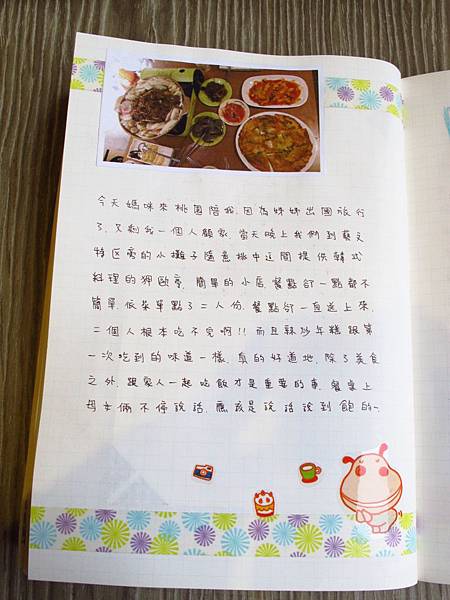 今天媽咪來桃園陪我,因為姊姊出國旅行
了,又剩我一個人顧家,當天晚上我們到藝文
特区旁的小攤子隨意挑中這間提供韓式
料理的狎鷗亭,簡單的小店,餐點卻一點都不
簡單,依菜單點了二人份,餐點卻一直送上來,
二個人根本吃不完啊!!而且辣炒年糕跟第
一次吃到的味道一樣,真的好道地,除了美食
之外,跟家人一起吃飯才是重要的事,餐桌上
母女倆不停說話,應該是說話說到飽的~